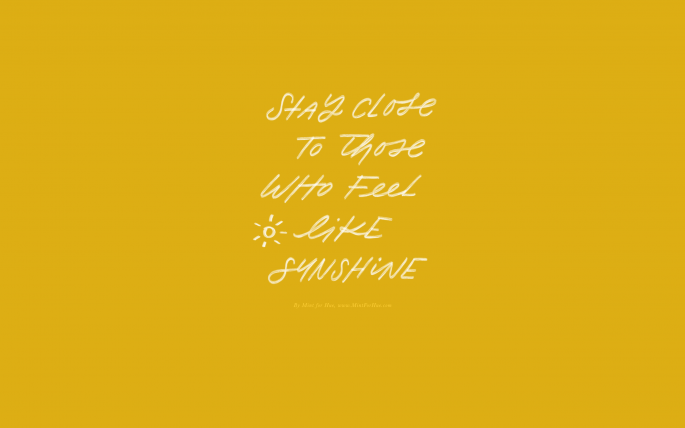 STAY Close
To Those
WHo Feel
liKE
SUNSHiNE